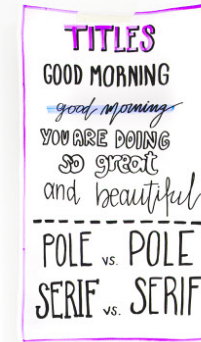 TITLES
GOOD MORNING
good morning
YOU ARE DOING
so great
and beautiful
POLE vs. POLE
SERIF vs. SERIF